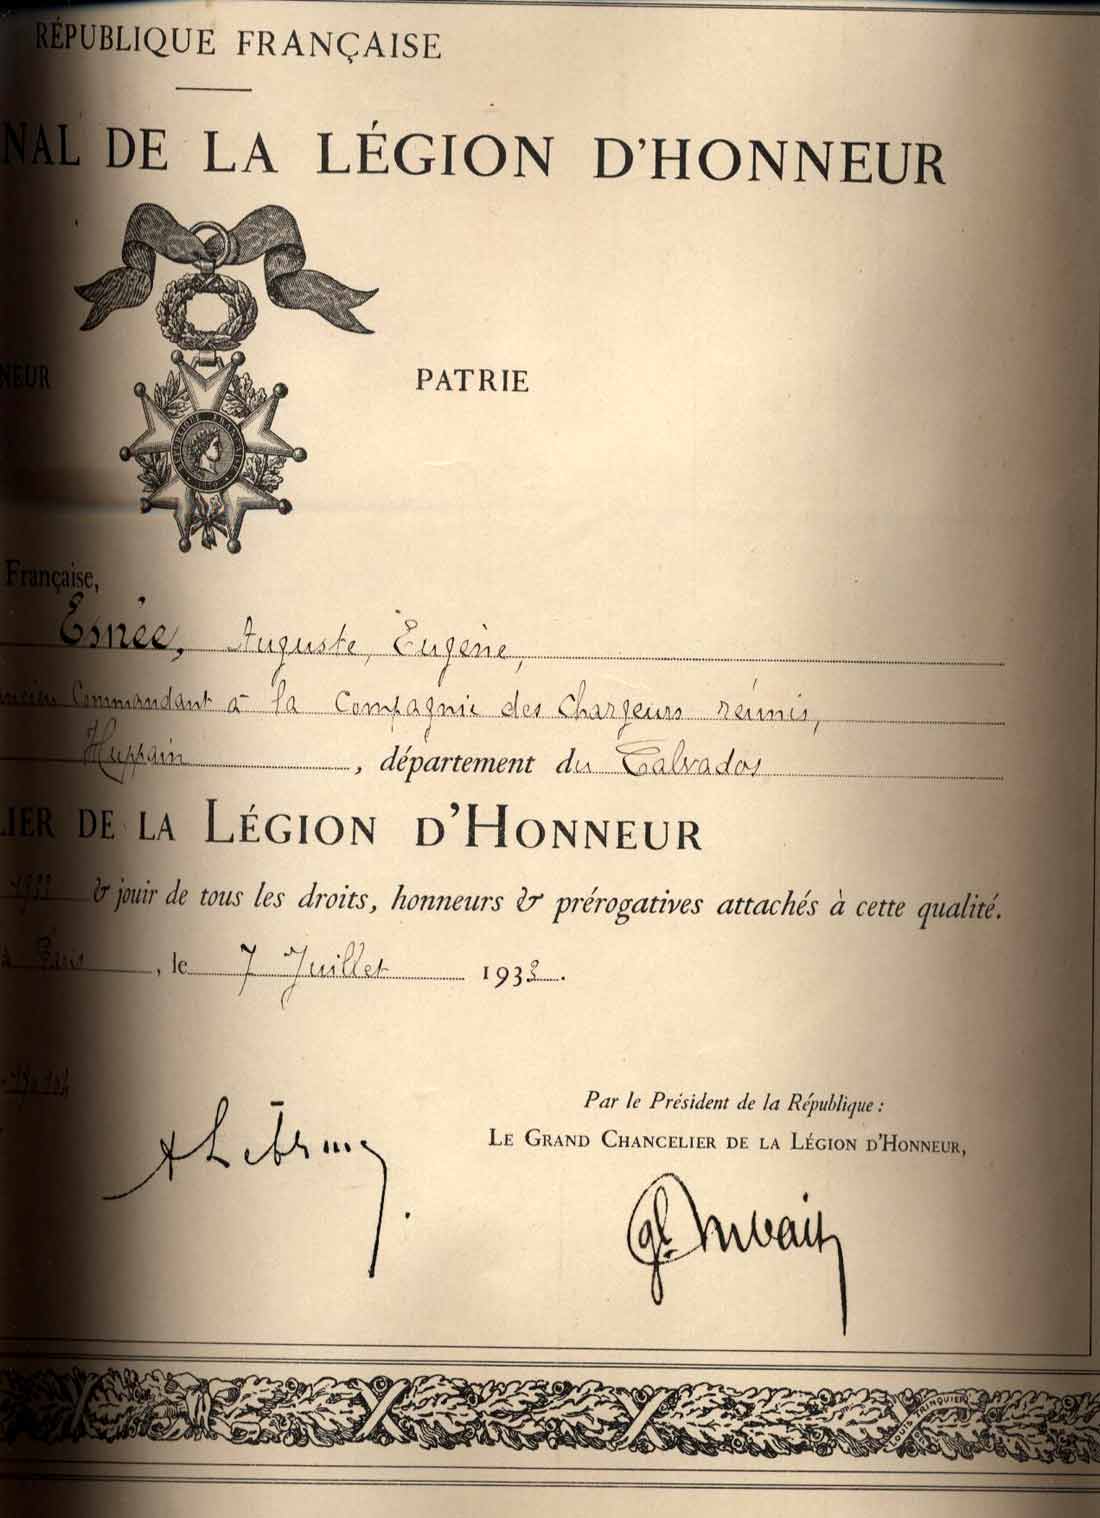 RÉPUBLIQUE FRANÇAISE
NAL DE LA LÉGION D'HONNEUR
RÉPUBLIQUE FRANÇAISE
1870
NEUR PATRIE
Française,
Esnée, Auguste, Eugène,
ancien Commandant à la Compagnie des Chargeurs réunis,
Huppain, département du Calvados
LIER DE LA LÉGION D'HONNEUR
1933 & jouir de tous les droits, honneurs & prérogatives attachés à cette qualité.
à Paris, le 7 Juillet 1933.
Par le Président de la République :
LE GRAND CHANCELIER DE LA LÉGION D'HONNEUR,
A Lebrun
gl.
LOUIS TRINQUIER